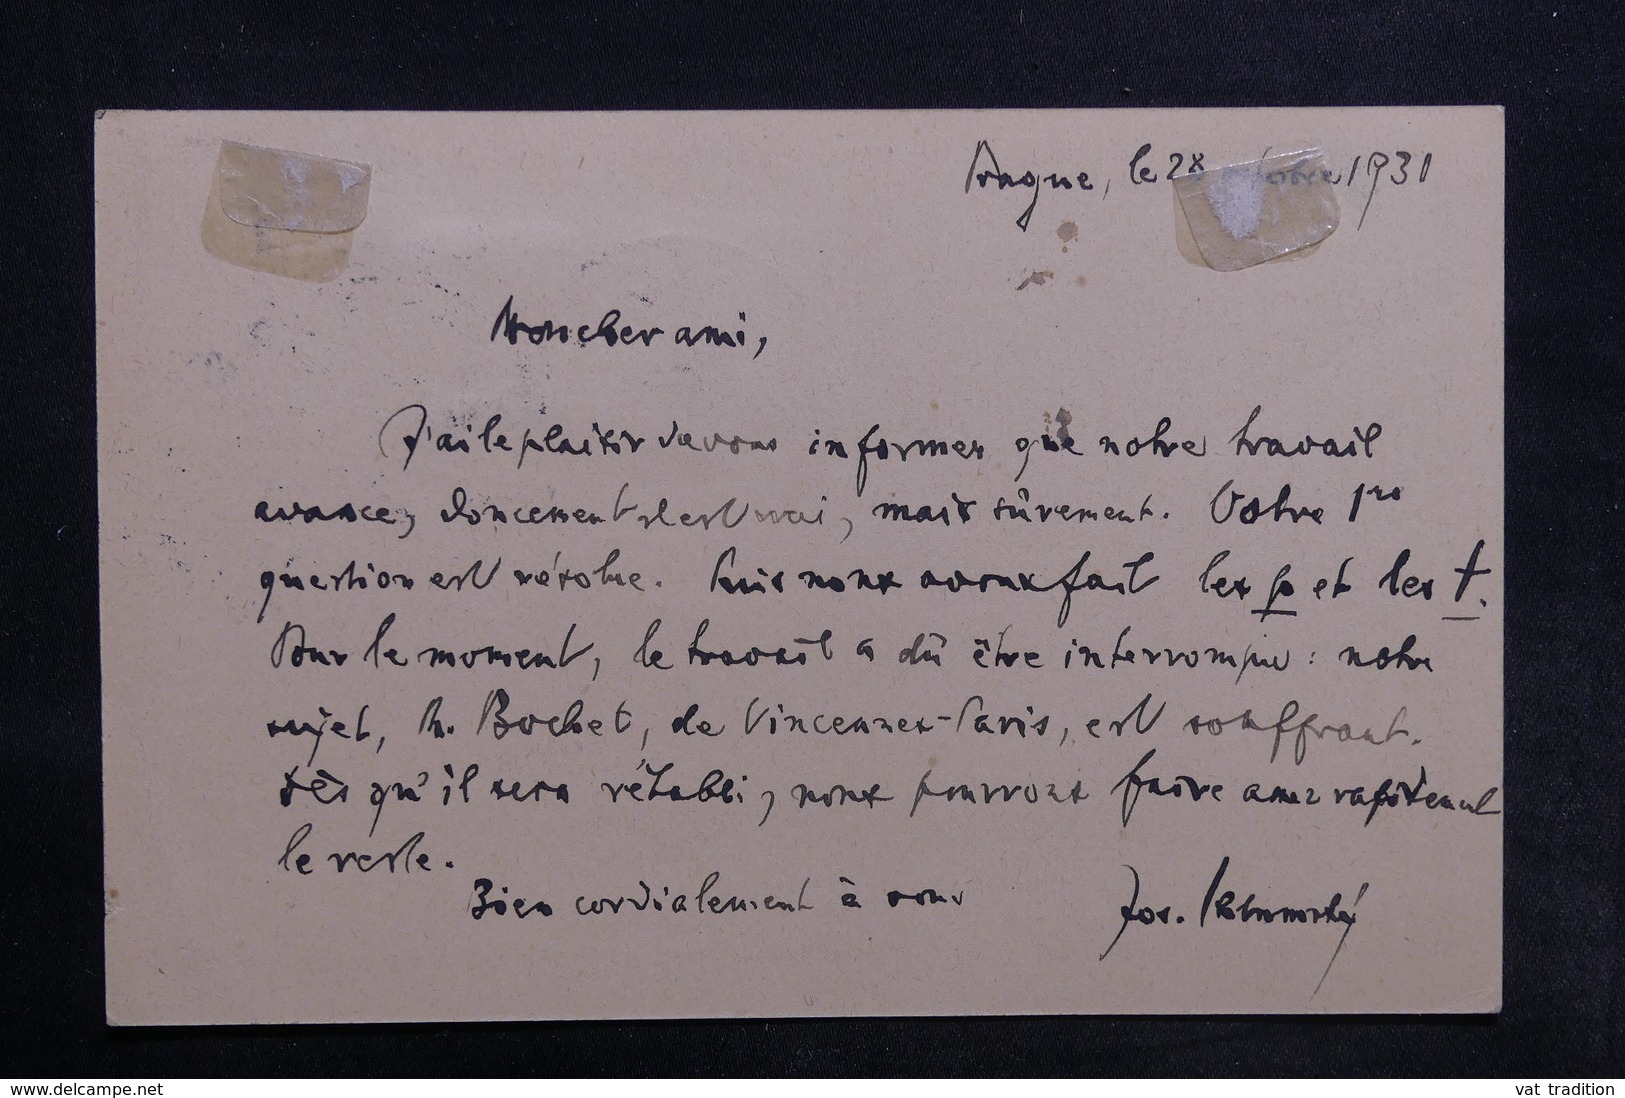 Prague, le 28 octobre 1931
Mon cher ami,
J'ai le plaisir de vous informer que notre travail
avance, doucement il est vrai, mais sûrement. Votre 1re
question est résolue. Puis nous avons fait les p et les t.
Pour le moment, le travail a dû être interrompu : notre
sujet, M. Bochet, de Vincennes-Paris, est souffrant.
Dès qu'il sera rétabli, nous pourrons faire assez rapidement
le reste.
Bien cordialement à vous
Jos. Chlumský
www.delcampe.net
vat_tradition